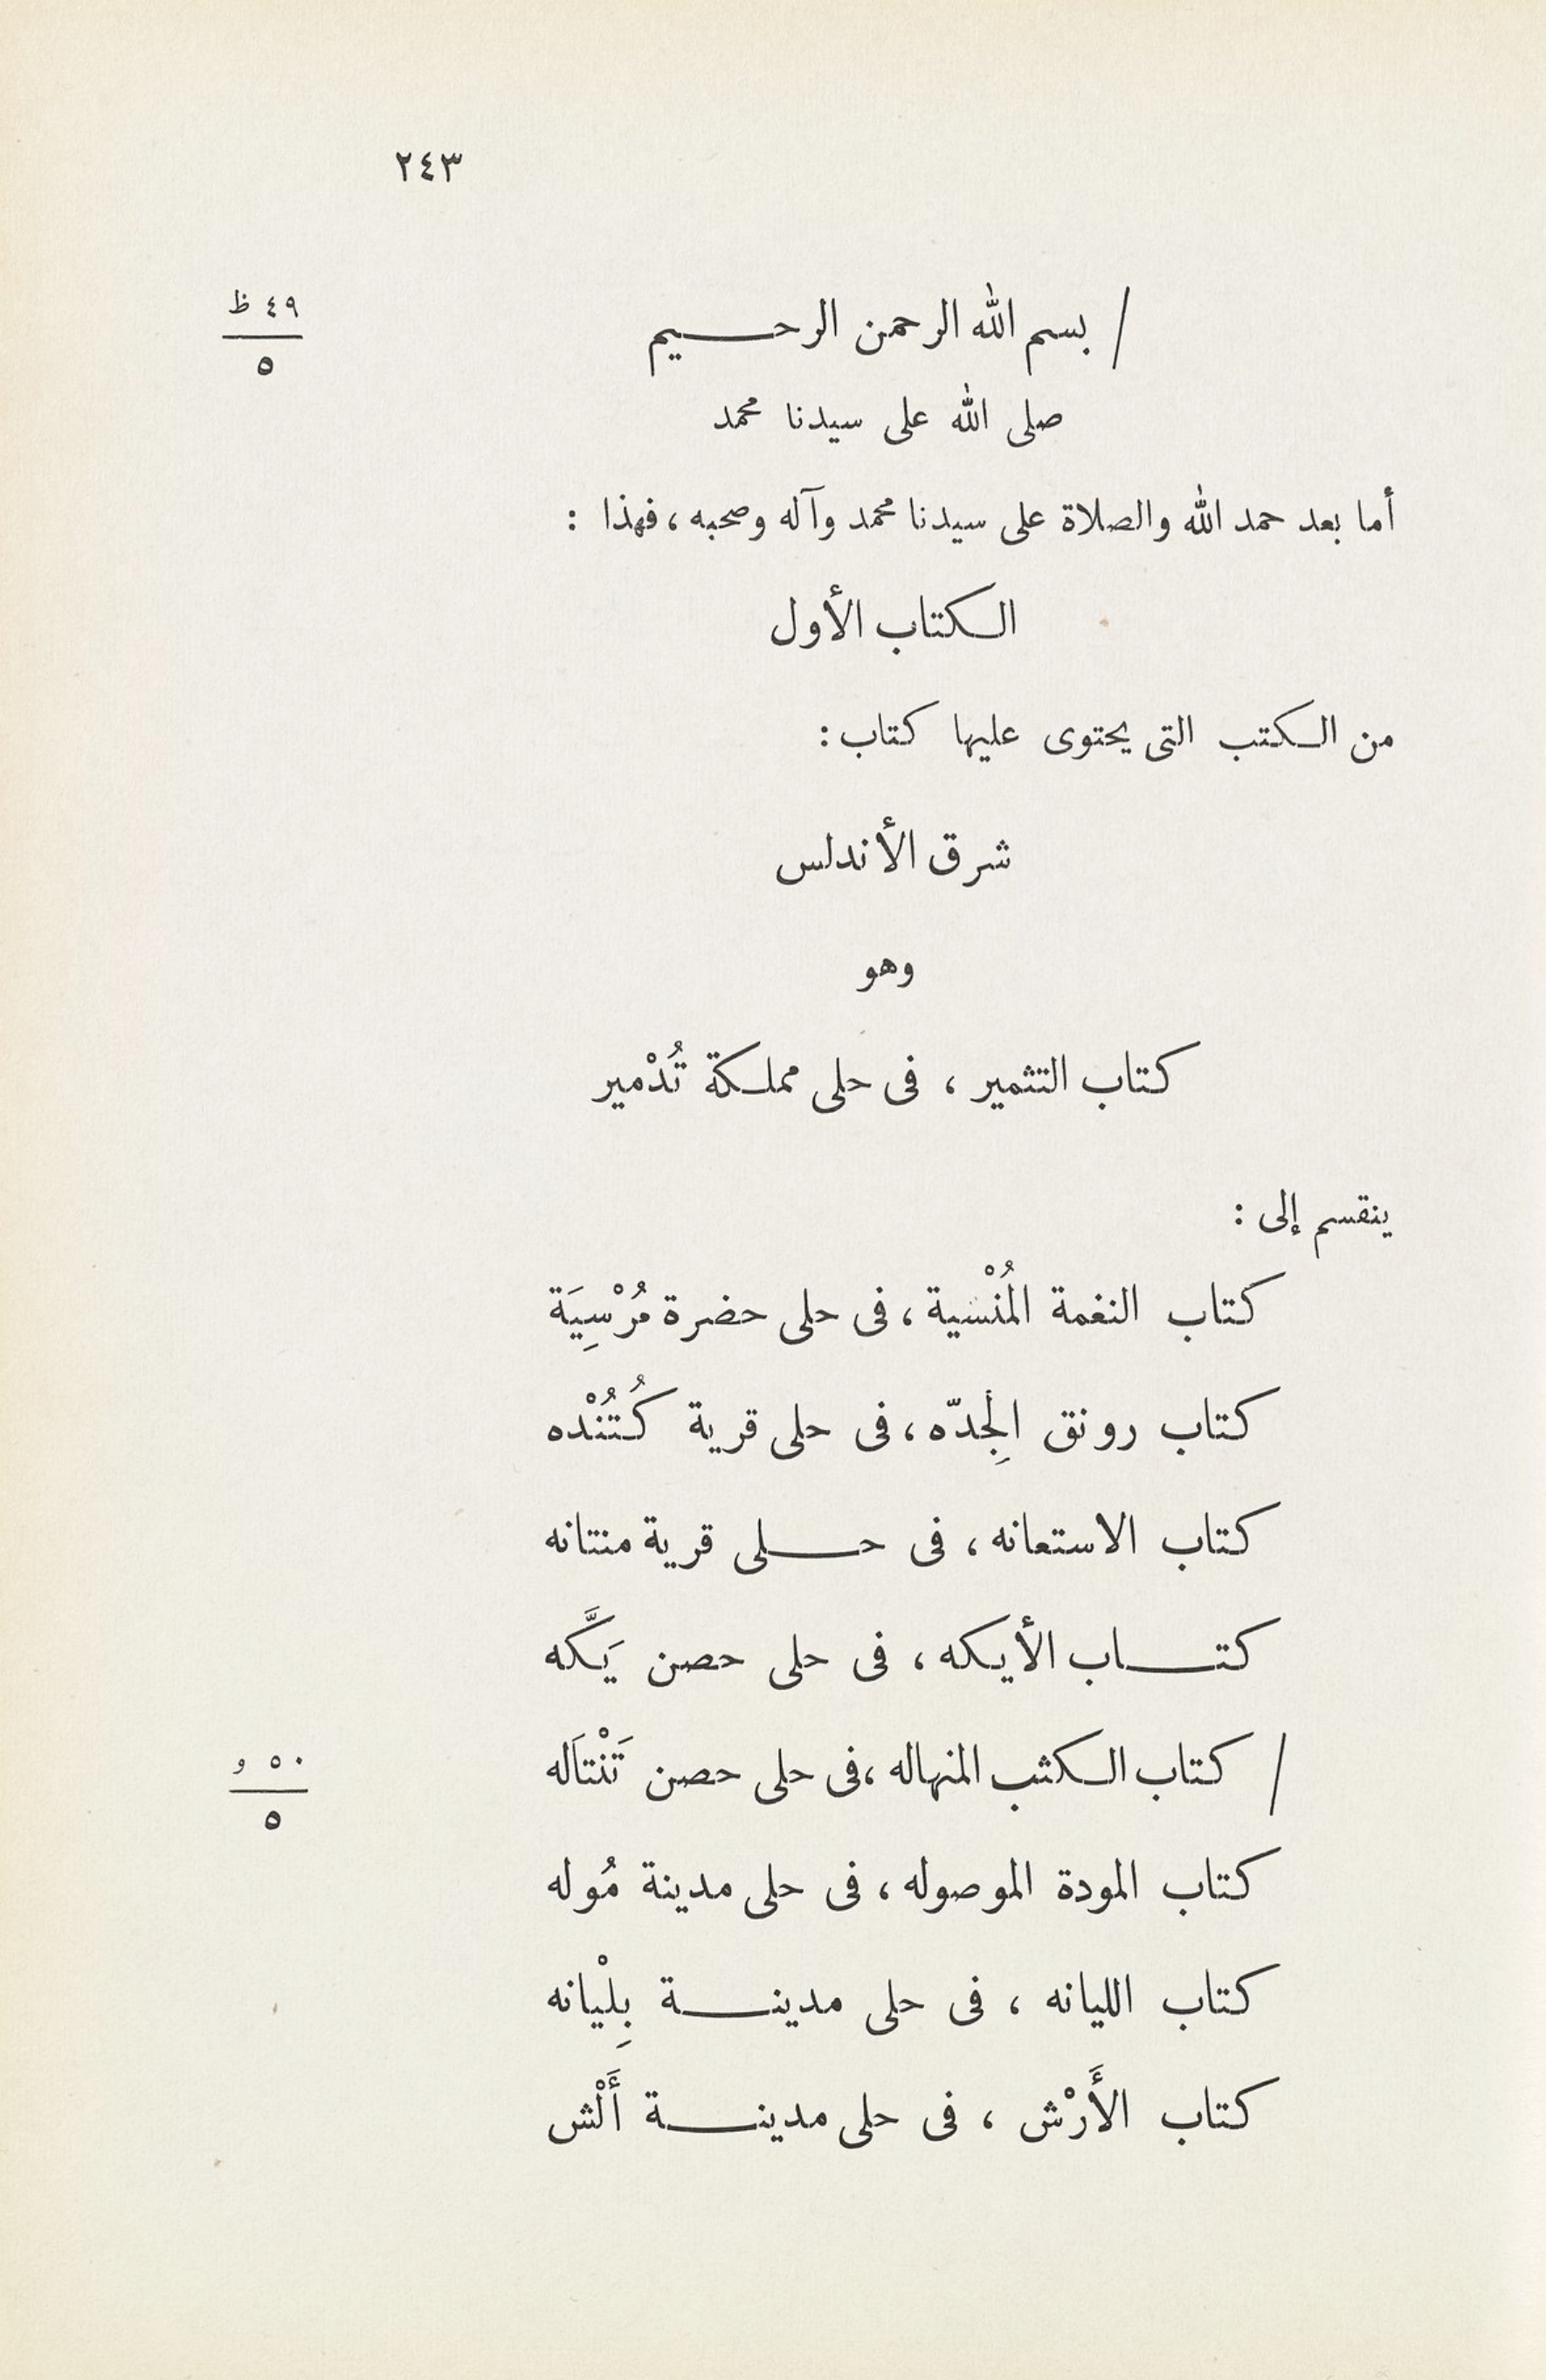 ٢٤٣
٤٩ ظ
٥
/ بسم الله الرحمن الرحيم
صلى الله على سيدنا محمد
أما بعد حمد الله والصلاة على سيدنا محمد وآله وصحبه ، فهذا :
الكتاب الأول
من الكتب التى يحتوى عليها كتاب :
شرق الأندلس
وهو
كتاب التثمير ، فى حلى مملكة تُدْمير
ينقسم إلى :
كتاب النغمة المُنْسية ، فى حلى حضرة مُرْسِيَة
كتاب رونق الجِدّه ، فى حلى قرية كُتُنْده
كتاب الاستعانه ، فى حلى قرية منتانه
كتاب الأيكه ، فى حلى حصن يَكَّه
٥٠ و
٥
/ كتاب الكثب المنهاله ، فى حلى حصن تَنْتَاله
كتاب المودة الموصوله ، فى حلى مدينة مُوله
كتاب الليانه ، فى حلى مدينة بِلْيانه
كتاب الأَرْش ، فى حلى مدينة أَلْش